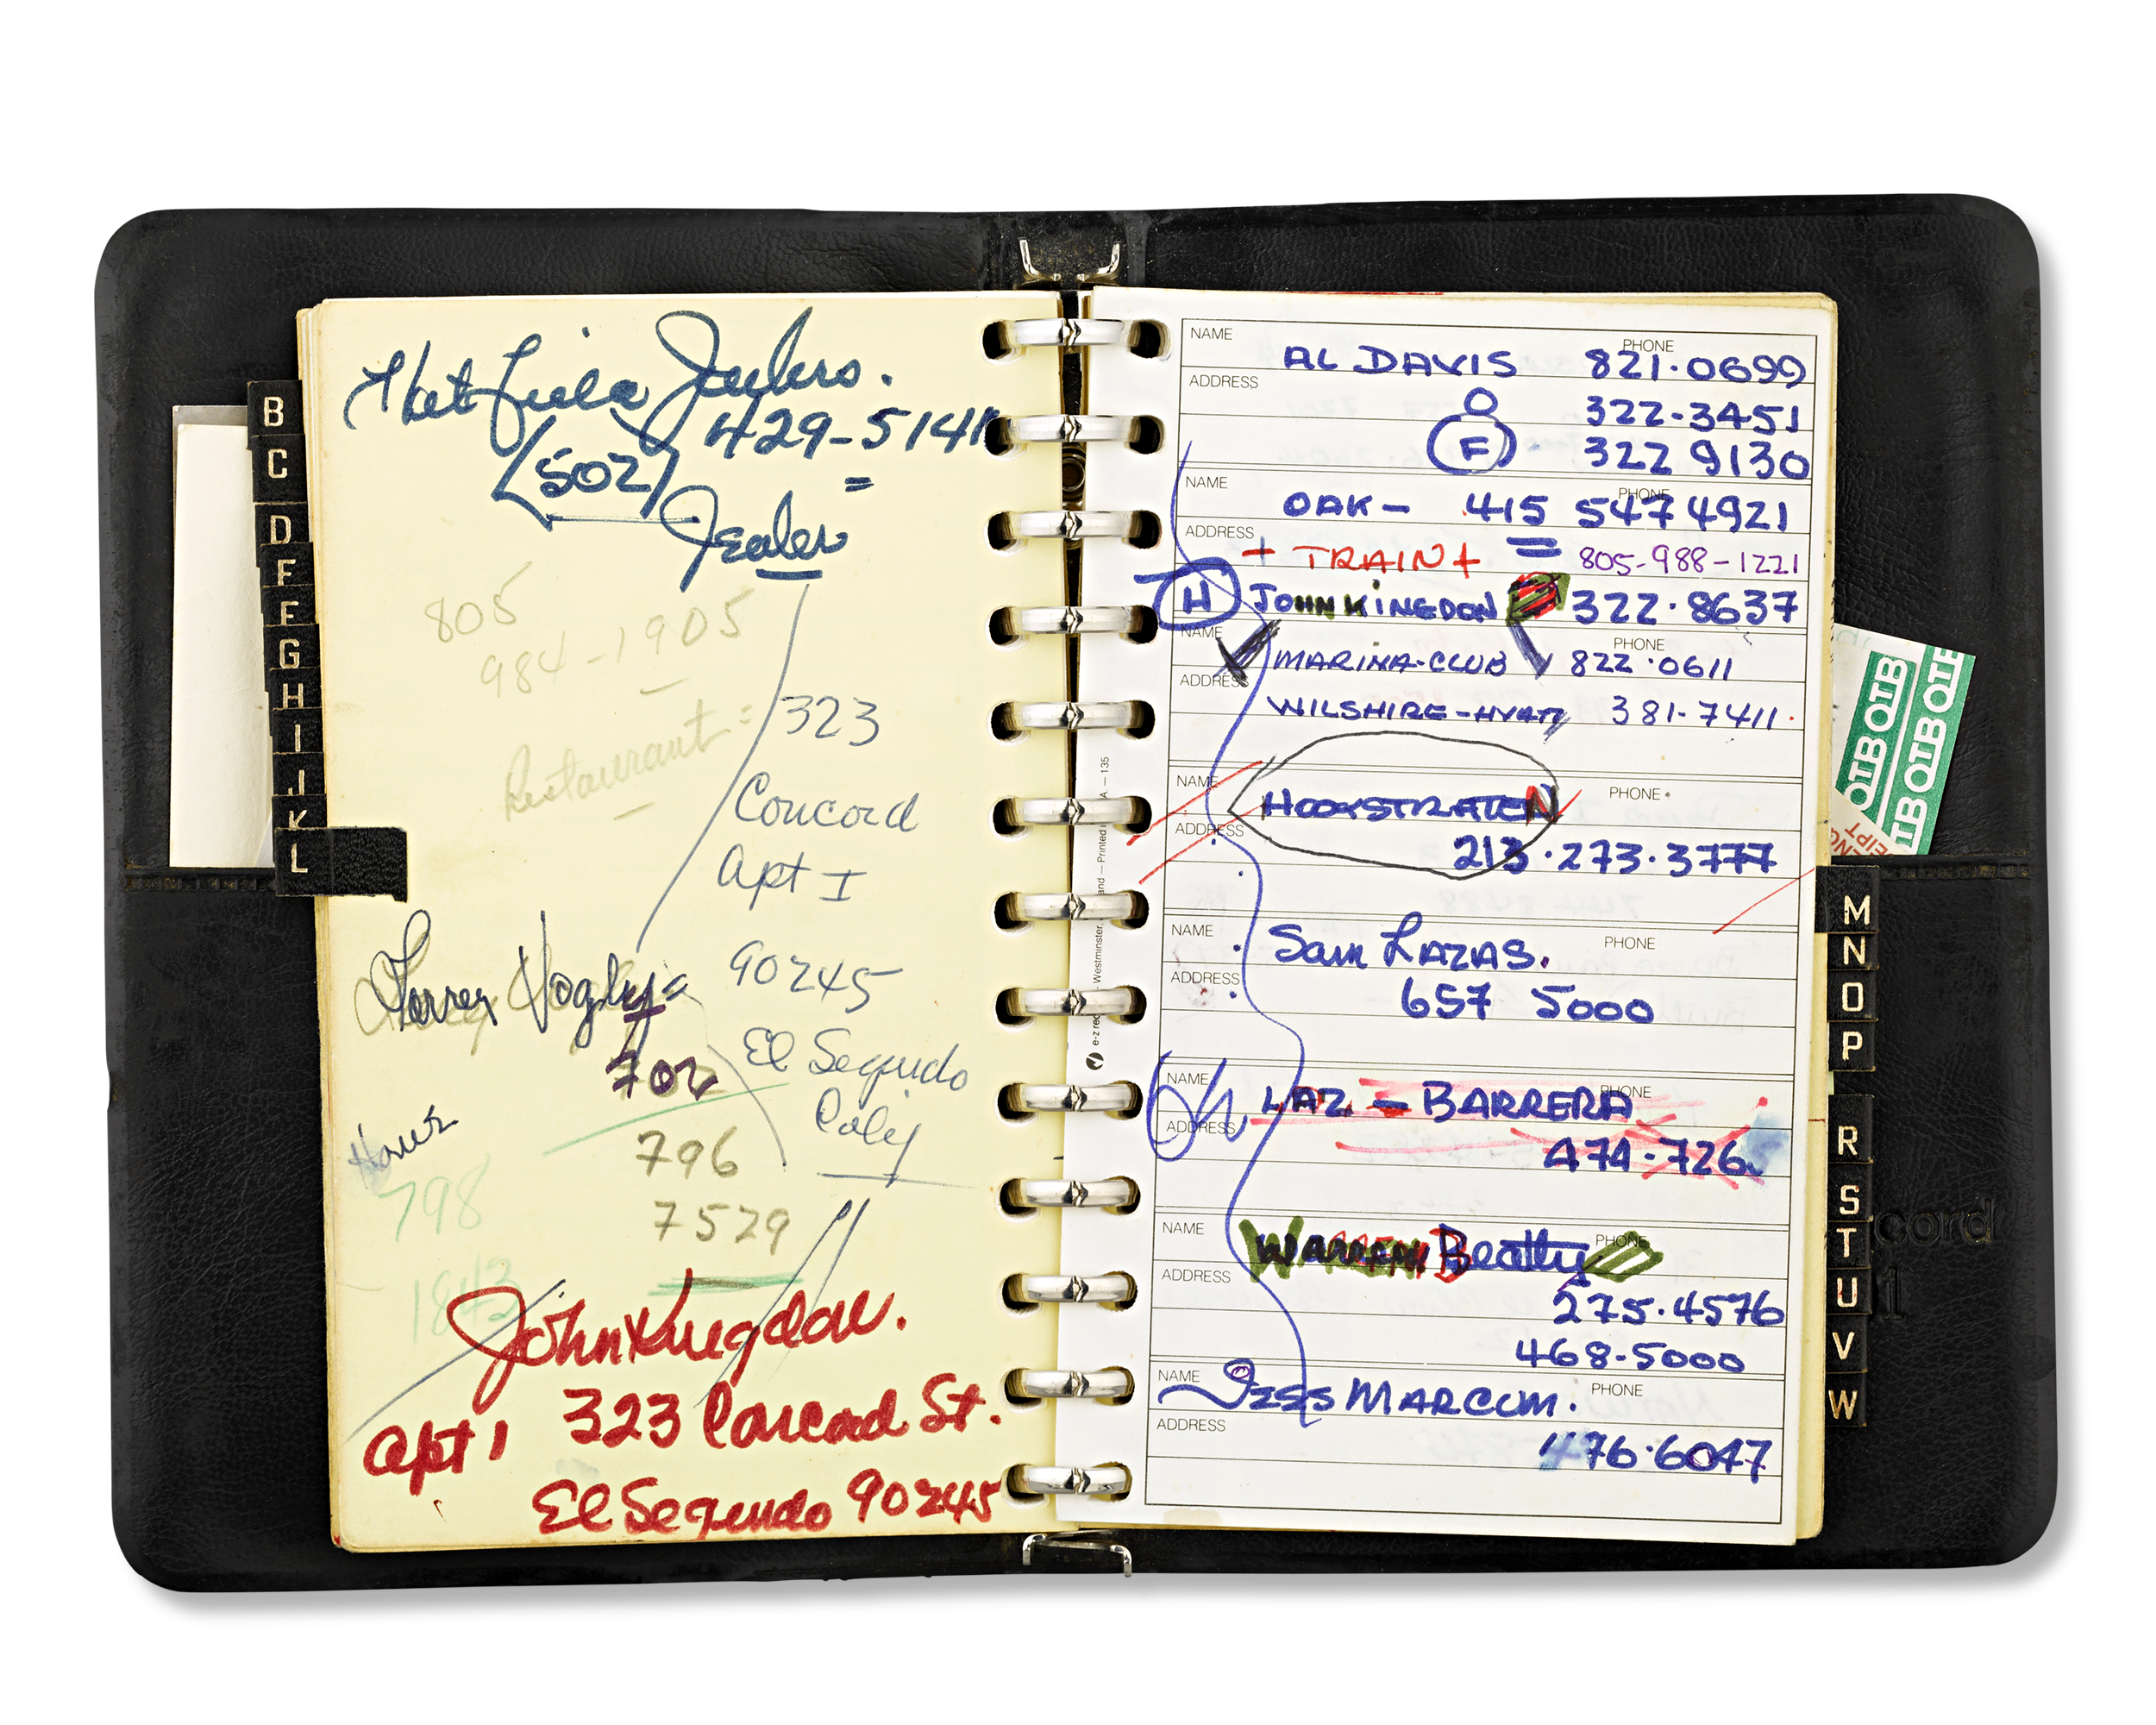 B
C
D
F
F
G
H
I
J
K
L
429-5141
(502)
=
Jealer
805
984-1905
Restaurant =
323
Concord
Apt I
90245
El Segundo
Calif
702
796
7529
798
1843
John Kingdon.
323 Concord St.
Apt 1
El Segundo 90245
NAME AL DAVIS PHONE 821·0699
ADDRESS O 322-3451
F - 322 9130
NAME OAK - PHONE 415 547 4921
ADDRESS + TRAIN + = 805-988-1221
H JOHN KINGDON 322·8637
NAME MARINA-CLUB PHONE 822·0611
ADDRESS WILSHIRE-HYATT 381-7411.
NAME HOOKSTRATEN PHONE
ADDRESS 213·273·3777
NAME Sam LAZAS. PHONE
ADDRESS 657 5000
NAME LAZ - BARRERA PHONE
ADDRESS 474-726
NAME WARREN Beatty PHONE
ADDRESS 275.4576
468-5000
NAME JESS MARCUM. PHONE
ADDRESS 476·6047
Westminster,
Printed
A - 135
M
N
O
P
R
S
T
U
V
W
OTB OTB
OTB OTB
cord
1